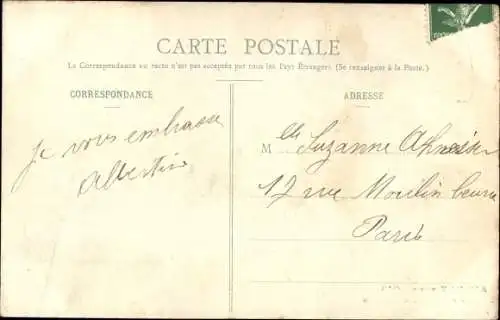 CARTE POSTALE
La Correspondance au recto n'est pas acceptée par tous les Pays Étrangers. (Se renseigner à la Poste.)
CORRESPONDANCE
ADRESSE
je vous embrasse
Albertine
Mlle Suzanne
12 rue Moulin
Paris